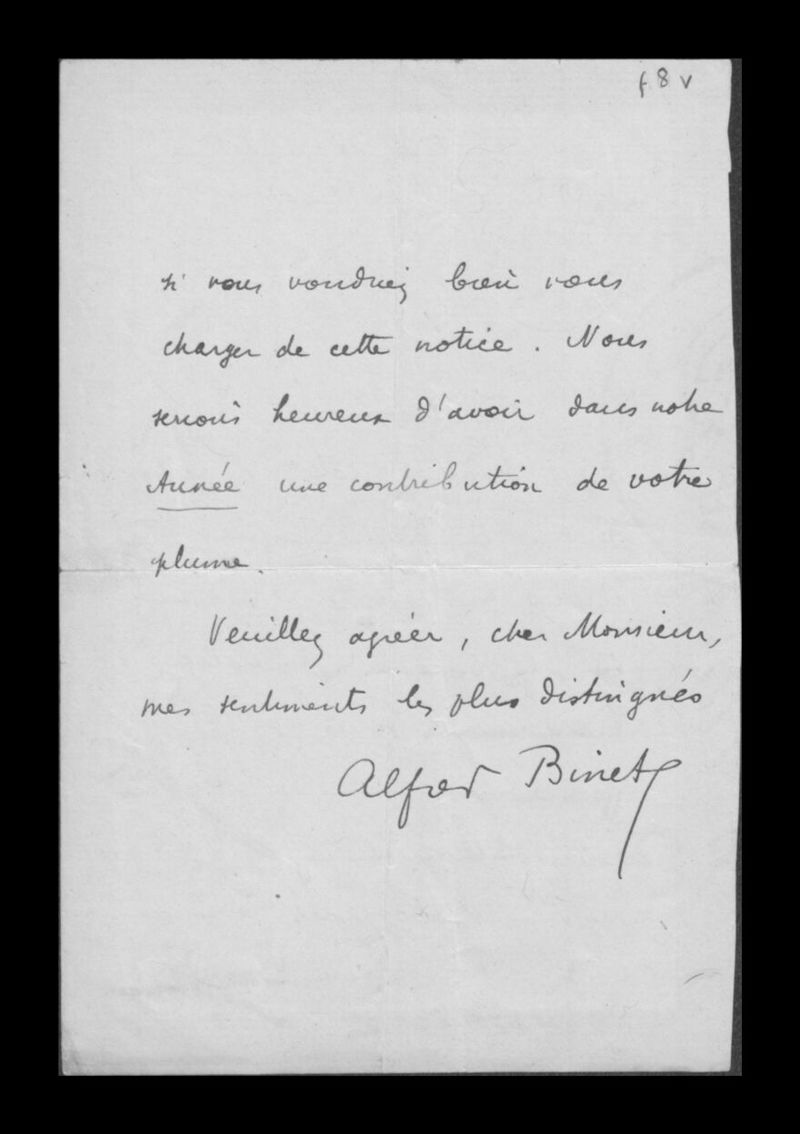 f 8 v
si vous voudriez bien vous
charger de cette notice. Nous
serions heureux d'avoir dans notre
Année une contribution de votre
plume.
Veuillez agréer, cher Monsieur,
mes sentiments les plus distingués
Alfred Binet